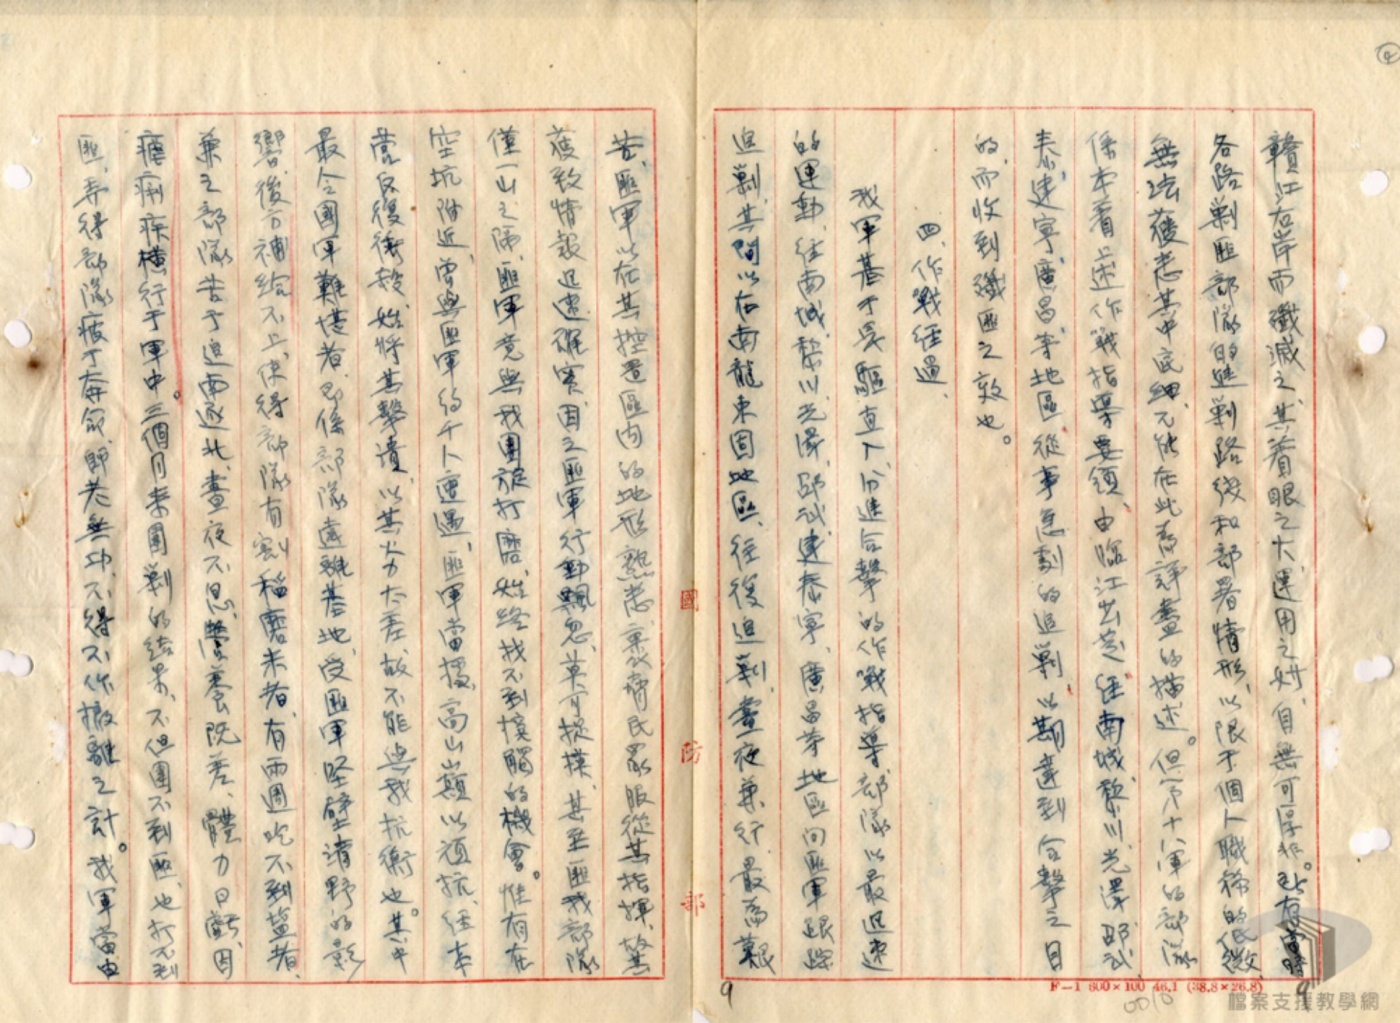 贛江右岸而殲滅之、其着眼之大、運用之妙、自無可厚非。所有當時
各路剿匪部隊的進剿路線和部署情形、以限于個人職務的低微、
無法獲悉其中底細、不能在此為詳盡的描述。但第十八軍的部隊
係本着上述作戰指導要領、由臨江出發、經南城、黎川、光澤、邵武、
泰寧、建寧、廣昌等地區、從事急劇的追剿、以期達到合擊之目
的、而收到殲匪之效也。
四、作戰經過、
我軍基于長驅直入、分進合擊的作戰指導、部隊以最迅速
的運動、經南城、黎川、光澤、邵武、建泰寧、廣昌等地區向匪軍跟踪
追剿、其間以在南龍東固地區、往復追剿、晝夜兼行、最為艱
苦、匪軍以在其控置區內的地形熟悉、裹脅民眾服從其指揮、故
獲致情報迅速確實、因之匪軍行動飄忽、莫可捉摸、甚至匪我部隊
僅一山之隔、匪軍竟與我團旋打磨、始終找不到接觸的機會。惟有在
空坑附近、曾與匪軍約千人遭遇、匪軍當據高山巔以頑抗、經本
營反復衝殺、始將其擊潰、以其火力太差、故不能與我抗衡也。其中
最令國軍難堪者、即係部隊遠離基地、受匪軍堅壁清野的影
響、後方補給不上、使得部隊有割稻磨米者、有兩週吃不到鹽者、
兼之部隊苦于追南逐北、晝夜不息、營養既差、體力日虧、因
瘧痢疾橫行于軍中。三個月來圍剿的結果、不但圍不到匪、也打不到
匪、弄得部隊疲于奔命、師老無功、不得不作撤離之計。我軍當由
國防部
F—1 600×100 46.1 (38.8×26.8)
9
9
0010
檔案支援教學網